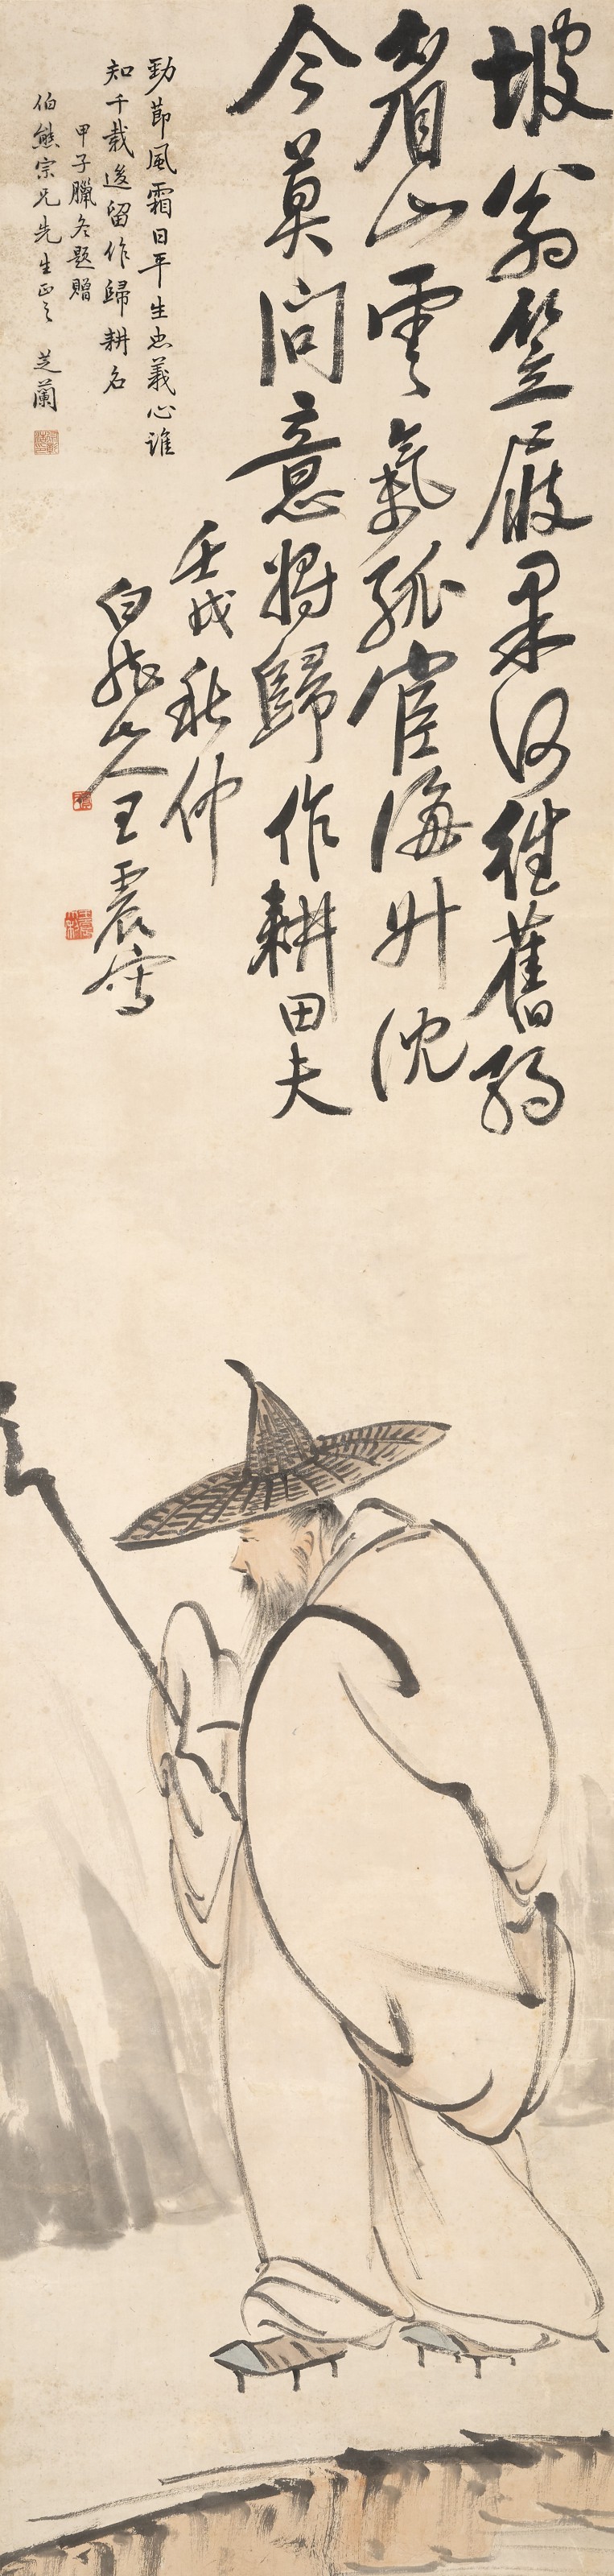 坡翁笠屐果何從舊夢
看山雲氣孤宦海升沈
今莫問意將歸作耕田夫
壬戌秋仲
白龍山人王震寫
勁節風霜日平生忠義心誰
知千載後留作歸耕名
甲子臘冬題贈
伯熊宗兄先生正之 芝蘭